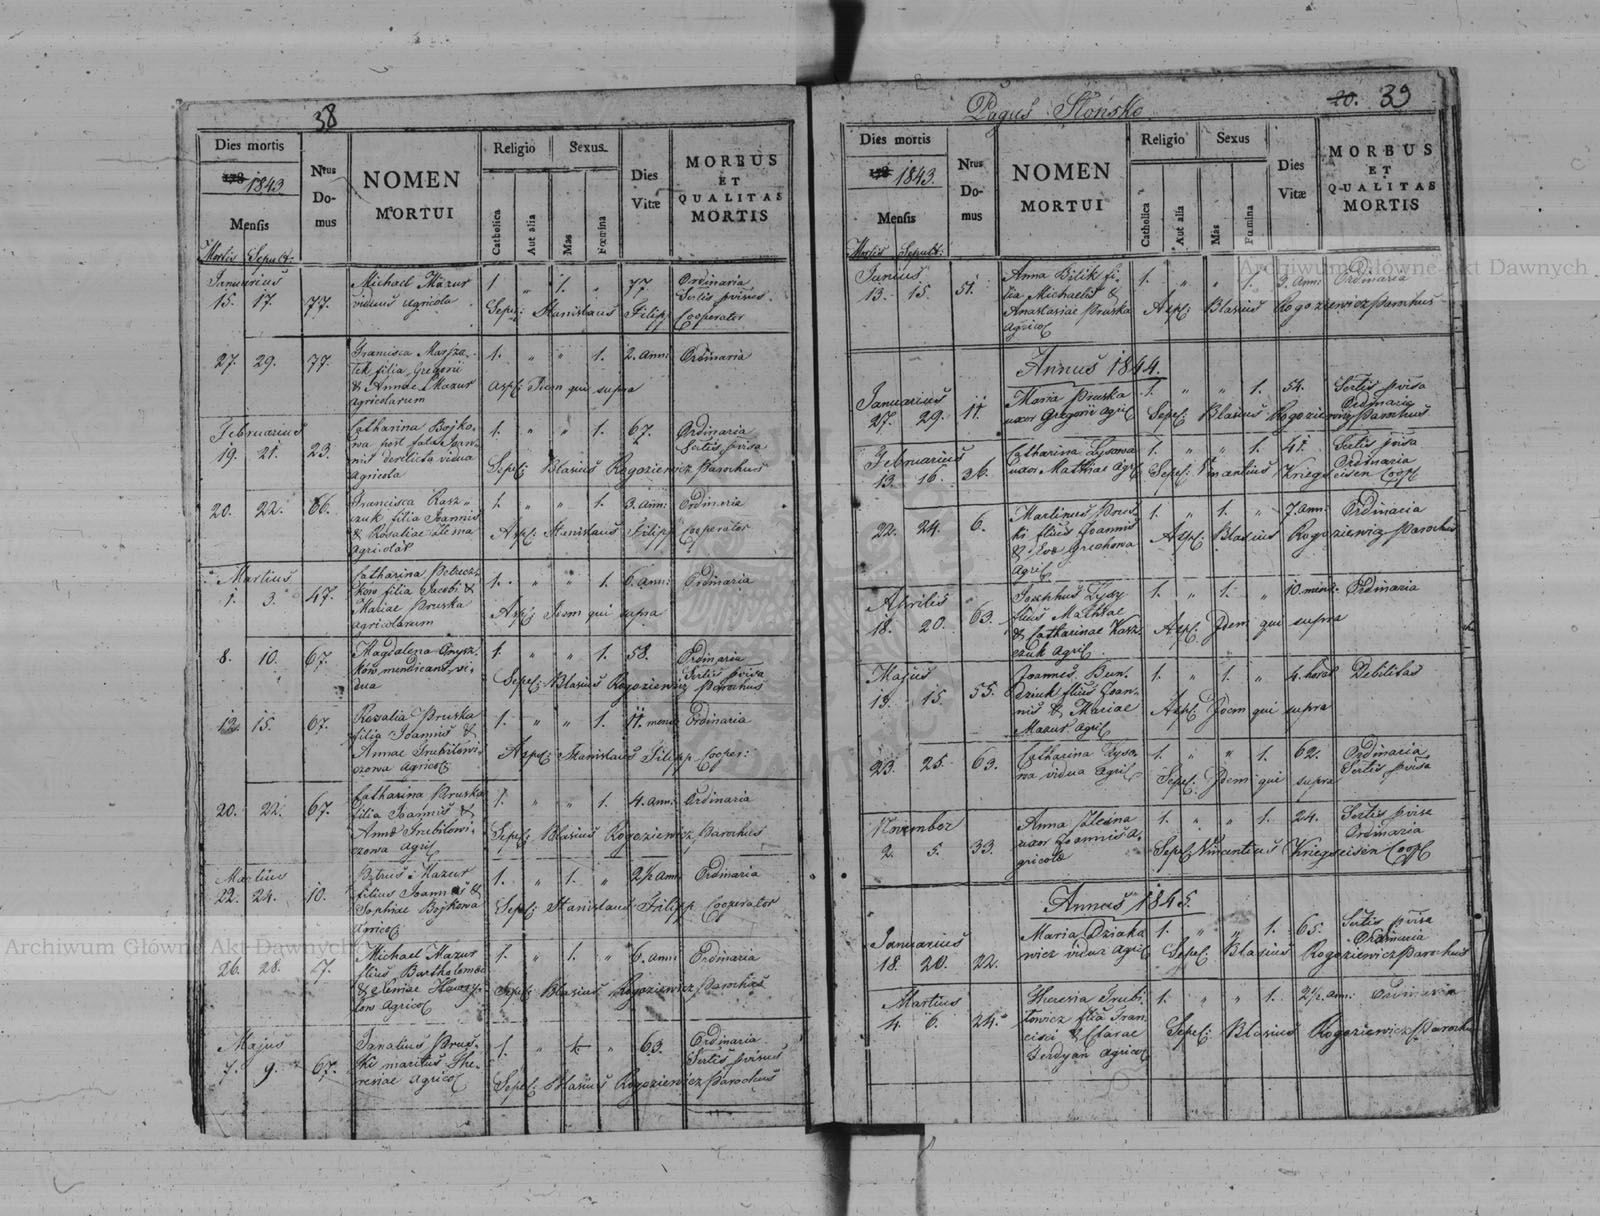 38
Dies mortis
178 1843
Mensis
Mortis Sepult:
Nrus
Do-
mus
NOMEN
MORTUI
Religio
Catholica
Aut alia
Sexus
Mas
Fœmina
Dies
Vitæ
MORBUS
ET
QUALITAS
MORTIS
Januarius
15. 17. 77.
Michael Mazur
viduus Agricola
1. „ 1. „ 77
Ordinaria
Sepel: Stanislaus Filipp
Cooperator
27. 29. 77.
Francisca Marsza
tek filia Gregorii
& Annae Mazur
Agricolarum
1. „ „ 1. 2. ann: Ordinaria
Aspel: Idem qui supra
Februarius
19. 21. 23.
Catharina Bojko
wa post fata
derelicta vidua
Agricola
1. „ „ 1. 67. Ordinaria
Sepel: Blasius Rogoziewicz Parochus
20. 22. 66.
Francisca Kasz
czuk filia Joannis
& Rosaliae
Agricolar
1. „ „ 1. 3. ann: Ordinaria
Asp: Stanislaus Filipp Cooperator
Martius
1. 3. 47.
Catharina
ków filia Jacobi &
Mariae Pruska
Agricolarum
1. „ „ 1. 6. ann: Ordinaria
Asp: Idem qui supra
8. 10. 67.
Magdalena
ków mendicans vi-
dua
1. „ „ 1. 58. Ordinaria
Sepel: Blasius Rogoziewicz Parochus
12. 15. 67.
Rosalia Pruska
filia Joannis &
Annae Trubilowi-
czowa Agricol
1. „ „ 1. 11. mens: Ordinaria
Aspel: Stanislaus Filipp Cooper:
20. 22. 67.
Catharina Pruska
filia Joannis &
Annæ Trubilowi-
czowa Agril
1. „ „ 1. 4. ann: Ordinaria
Sepel: Blasius Rogoziewicz Parochus
Martius
22. 24. 10.
Petrus Mazur
filius Joannis &
Sophiae Bojkowa
Agricol
1. „ 1. „ 2½ ann: Ordinaria
Sepel: Stanislaus Filipp Cooperator
26. 28. 7.
Michael Mazur
filius Bartholomae
Agricol
1. „ 1. „ 6. ann: Ordinaria
Sepel: Blasius Rogoziewicz Parochus
Majus
7. 9. 67.
Ignatius Prus-
ki maritus The-
resiae Agricol
1. „ 1. „ 63. Ordinaria
Sepel: Blasius Rogoziewicz Parochus
Pagus Słońsko.
20. 39
Dies mortis
178 1843.
Mensis
Mortis Sepult:
Nrus
Do-
mus
NOMEN
MORTUI
Religio
Catholica
Aut alia
Sexus
Mas
Fœmina
Dies
Vitæ
MORBUS
ET
QUALITAS
MORTIS
Junius
13. 15. 51.
Anna Bilik fi-
lia Michaelis &
Anastasiae Pruska
Agricol
1. „ „ 1. 3. Ann: Ordinaria
Aspel: Blasius Rogoziewicz Parochus
Annus 1844.
Januarius
27. 29. 11.
Maria Pruska
uxor Gregorii Agril
1. „ „ 1. 54.
Ordinaria
Sepel: Blasius Rogoziewicz Parochus
Februarius
13. 16. 26.
Catharina Lysowa
uxor Mathiae Agril
1. „ „ 1. 47.
Ordinaria
Sepel: Kriegseisen Coop
22. 24. 6.
Martinus Prus-
ki filius Joannis
& Evæ Grechowa
Agril
1. „ 1. „ 7. ann: Ordinaria
Aspel: Blasius Rogoziewicz Parochus
Aprilis
18. 20. 63.
Josephus Lysy
filius Mathiae
& Catharinae Kasz-
czuk Agril
1. „ 1. „ 10. mens: Ordinaria
Aspel: Idem qui supra
Majus
13. 15. 55.
Joannes Bun-
dziuk filius Joan-
nis & Mariae
Mazur Agril
1. „ 1. „ 4. horas Debilitas
Aspel: Idem qui supra
23. 25. 63.
Catharina Lyso-
wa vidua Agril
1. „ „ 1. 62. Ordinaria
Sepel: Idem qui supra
November
2. 5. 33.
Anna
uxor Joannis A-
gricolæ
1. „ „ 1. 24.
Ordinaria
Sepel Vincentius Kriegseisen Coop
Annus 1845.
Januarius
18. 20. 22.
Maria Dziaka
wicz vidua Agril
1. „ „ 1. 65.
Ordinaria
Sepel: Blasius Rogoziewicz Parochus
Martius
4. 6. 24.
Theresia Trubi
lowicz filia Fran-
cisci & Clarae
Agricol
1. „ „ 1. 2½ ann: Ordinaria
Sepel: Blasius Rogoziewicz Parochus
Archiwum Główne Akt Dawnych
Archiwum Główne Akt Dawnych